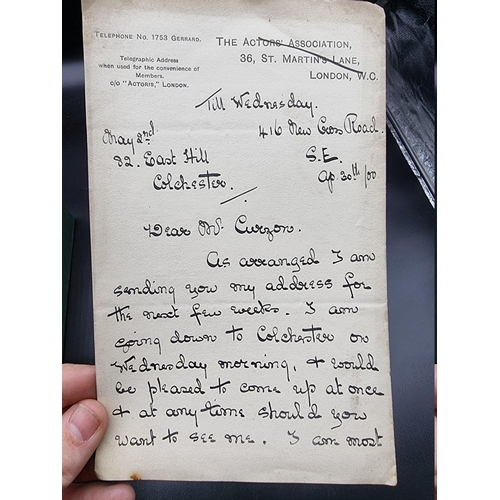 TELEPHONE NO. 1753 GERRARD.
THE ACTORS' ASSOCIATION,
36, ST. MARTIN'S LANE,
LONDON, W.C.
Telegraphic Address
when used for the convenience of
Members.
c/o "ACTORIS," LONDON.
Till Wednesday.
416 New Cross Road.
S.E.
Ap. 30th /00
May 2nd
82. East Hill
Colchester.
Dear Mr Curzon.
As arranged I am
sending you my address for
the next few weeks. I am
going down to Colchester on
Wednesday morning, & would
be pleased to come up at once
& at any time should you
want to see me. I am most